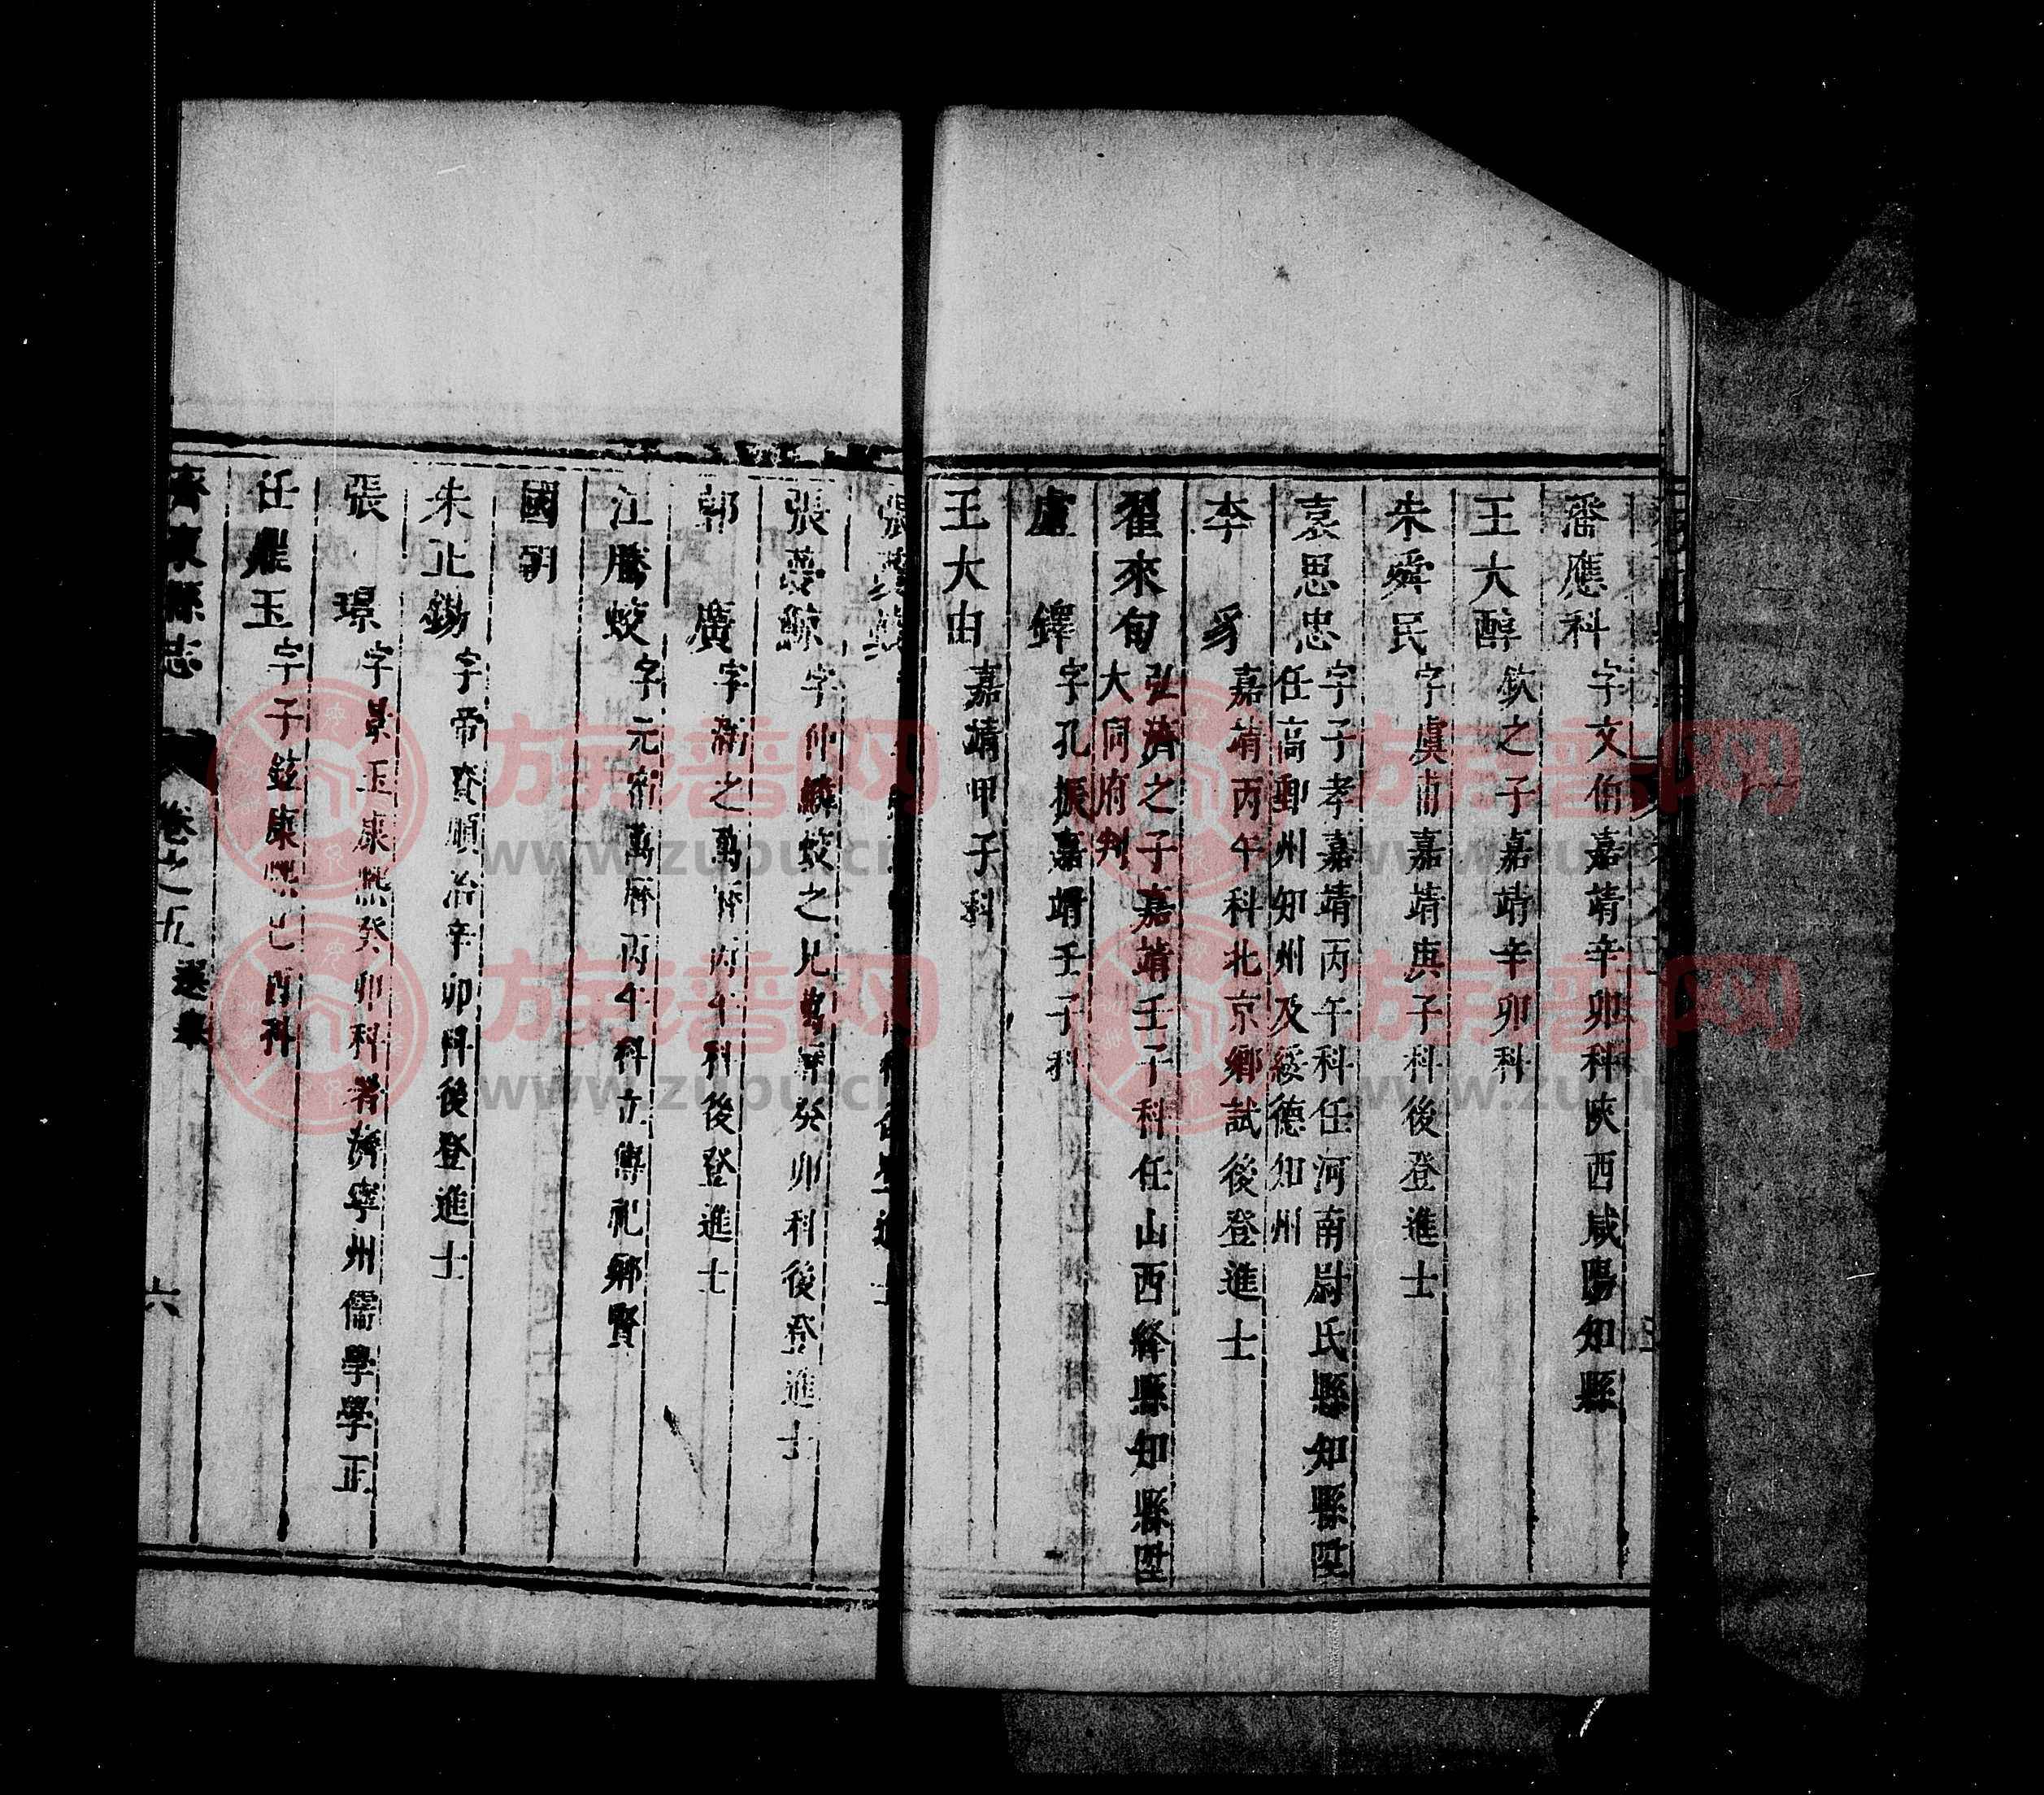 潘應科 字文伯嘉靖辛卯科陜西咸陽知縣
王大醇 欽之子嘉靖辛卯科
朱舜民 字虞甫嘉靖庚子科後登進士
袁思忠 字子孝嘉靖丙午科任河南尉氏縣知縣陞
任高郵州知州及綏德知州
李 豸 嘉靖丙午科北京鄉試後登進士
翟來旬 弘濟之子嘉靖壬子科任山西絳縣知縣陞
大同府判
盧 鐸 字孔振嘉靖壬子科
王大由 嘉靖甲子科
張夢鯨 字仲鱗蛟之兄萬曆癸卯科後登進士
郭 廣 字 之萬曆丙午科後登進士
江騰蛟 字元 萬曆丙午科立傳祀鄉賢
國朝
朱止鍚 字帝賚順治辛卯科後登進士
張 璟 字景玉康熙癸卯科着濟寧州儒學學正
任鼐玉 字子鉉康熙己酉科
濟東縣志 卷之五 選舉 六
族譜网
www.zupu.cn
族譜网
www.zupu.cn
族譜网
www.zupu.cn
族譜网
www.zupu.cn